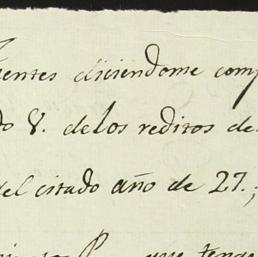 entes diciendome comp
do 8. delos reditos de
del citado año de 27.;
P que tenge